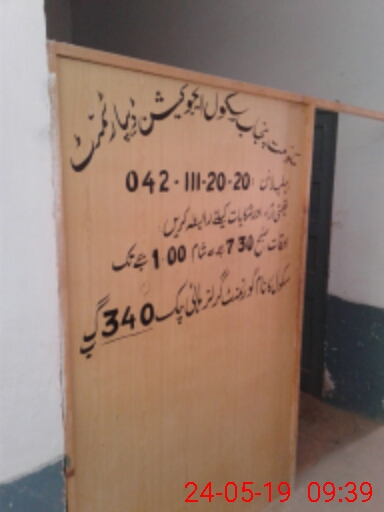 حکومت پنجاب سکول ایجوکیشن ڈیپارٹمنٹ
ہیلپ لائن: 042-111-20-20
قیمتی آراء اور شکایات کیلئے رابطہ کریں
اوقات صبح 7:30 بجے سے شام 1:00 بجے تک
سکول کا نام گورنمنٹ گرلز ہائی چک 340 گ ب
24-05-19 09:39